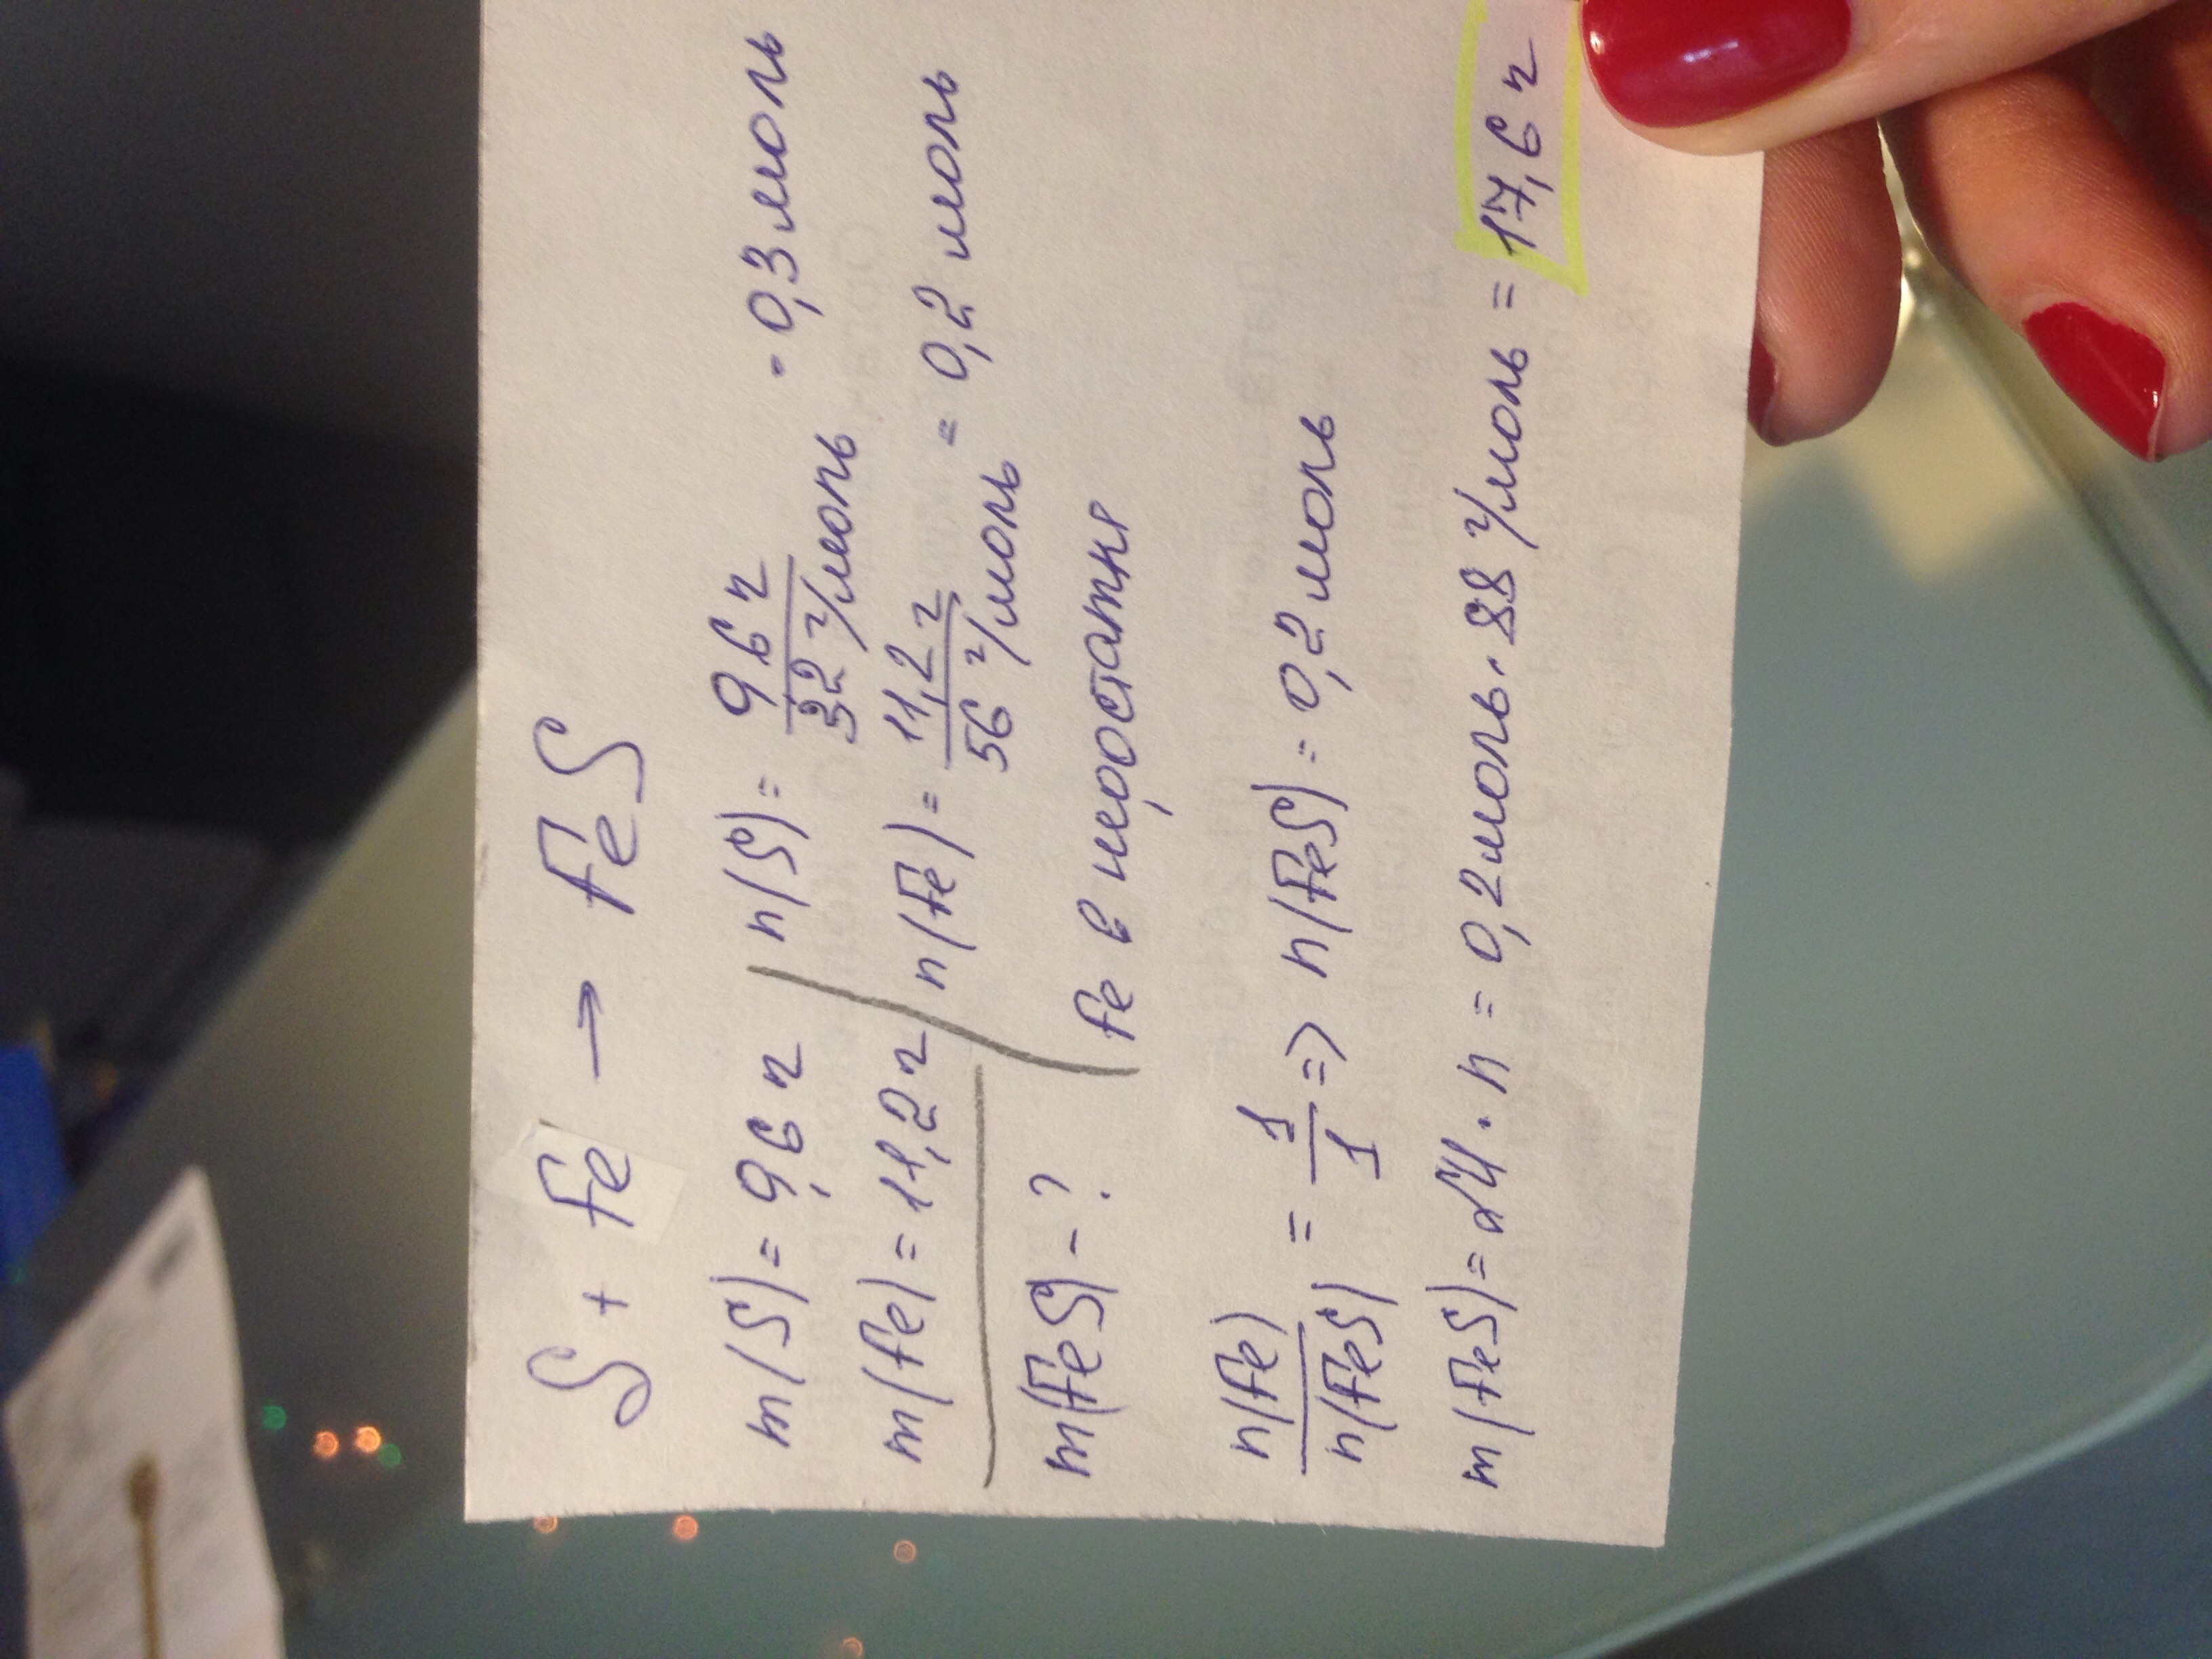 S + Fe → FeS
m(S) = 9,6 г
n(S) = 9 6 г / 32 г/моль - 0,3 моль
m(Fe) = 11,2 г
n(Fe) = 11,2 г / 56 г/моль = 0,2 моль
m(FeS) - ?
Fe в недостатке
n(Fe) / n(FeS) = 1/1 => n(FeS) = 0,2 моль
m(FeS) = M · n = 0,2 моль · 88 г/моль = 17,6 г